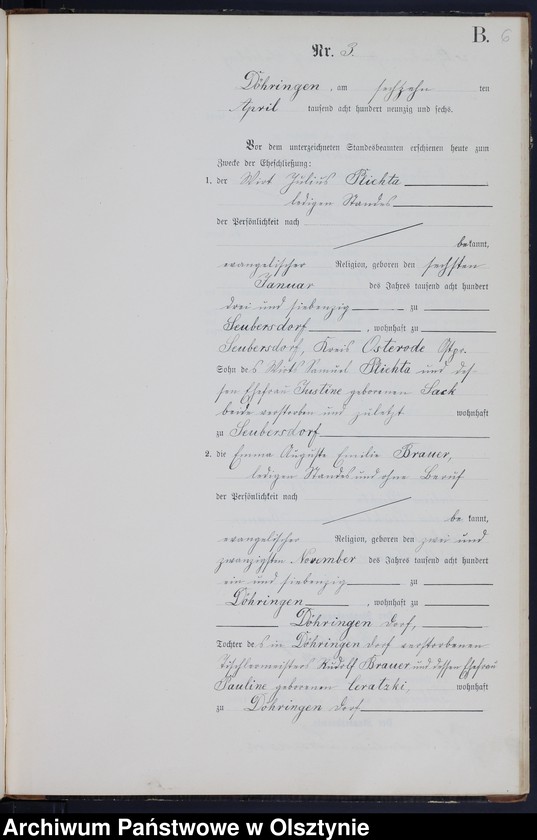 B. 6
Nr. 3.
Döhringen, am sechzehn ten
April tausend acht hundert neunzig und sechs.
Vor dem unterzeichneten Standesbeamten erschienen heute zum
Zwecke der Eheschließung:
1. der Wirt Julius Stichta
ledigen Standes
der Persönlichkeit nach
bekannt,
evangelischer Religion, geboren den sechsten
Januar des Jahres tausend acht hundert
drei und siebenzig zu
Seubersdorf, wohnhaft zu
Seubersdorf, Kreis Osterode Ostpr.
Sohn des Wirts Samuel Stichta und des-
sen Ehefrau Justine geborenen Sack
beide verstorben und zuletzt wohnhaft
zu Seubersdorf
2. die Emma Auguste Emilie Brauer,
ledigen Standes und ohne Beruf
der Persönlichkeit nach
bekannt,
evangelischer Religion, geboren den zwei und
zwanzigsten November des Jahres tausend acht hundert
ein und siebenzig zu
Döhringen, wohnhaft zu
Döhringen Dorf,
Tochter des in Döhringen Dorf verstorbenen
Tischlermeisters Rudolf Brauer und dessen Ehefrau
Pauline geborenen Ceratzki, wohnhaft
zu Döhringen Dorf
Archiwum Państwowe w Olsztynie